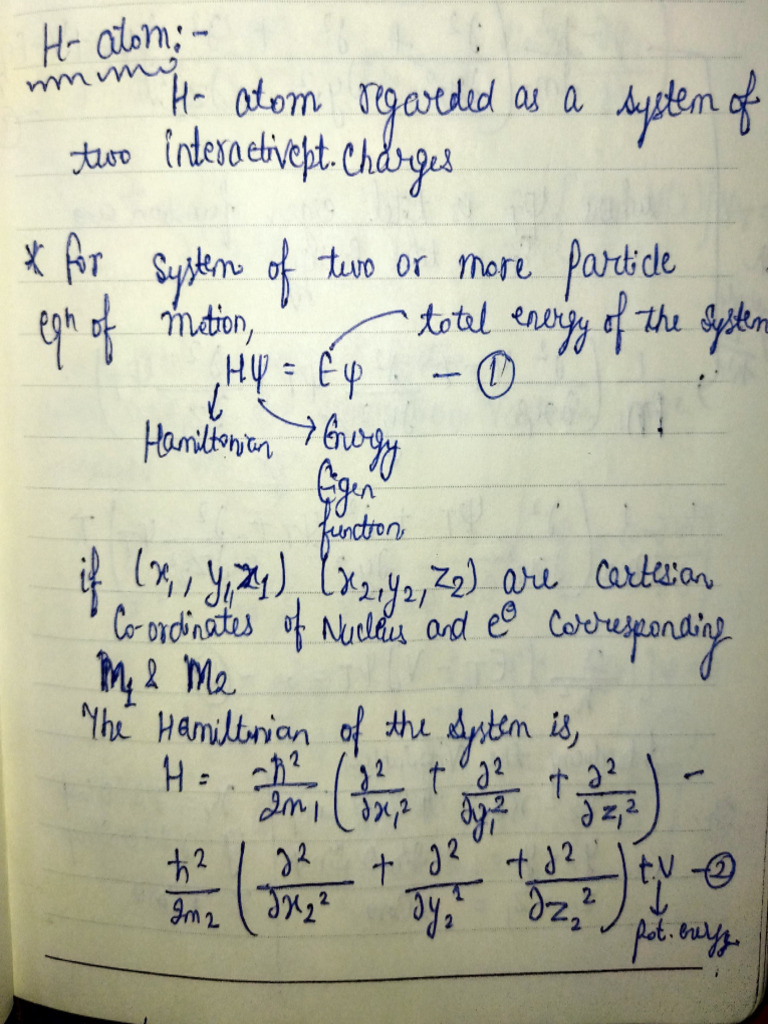 H- atom:-
H- atom regarded as a system of
two interactivept. charges
* for system of two or more particle
eqn of motion, total energy of the system
Hψ = Eψ — ①
Hamiltonian Energy
Eigen
function
if (x₁, y₁, z₁) (x₂, y₂, z₂) are Cartesian
Co-ordinates of Nucleus and e⊖ corresponding
m₁ & m₂
The Hamiltonian of the system is,
H = -ħ²/2m₁ (∂²/∂x₁² + ∂²/∂y₁² + ∂²/∂z₁²) -
ħ²/2m₂ (∂²/∂x₂² + ∂²/∂y₂² + ∂²/∂z₂²) + V — ②
pot. energy